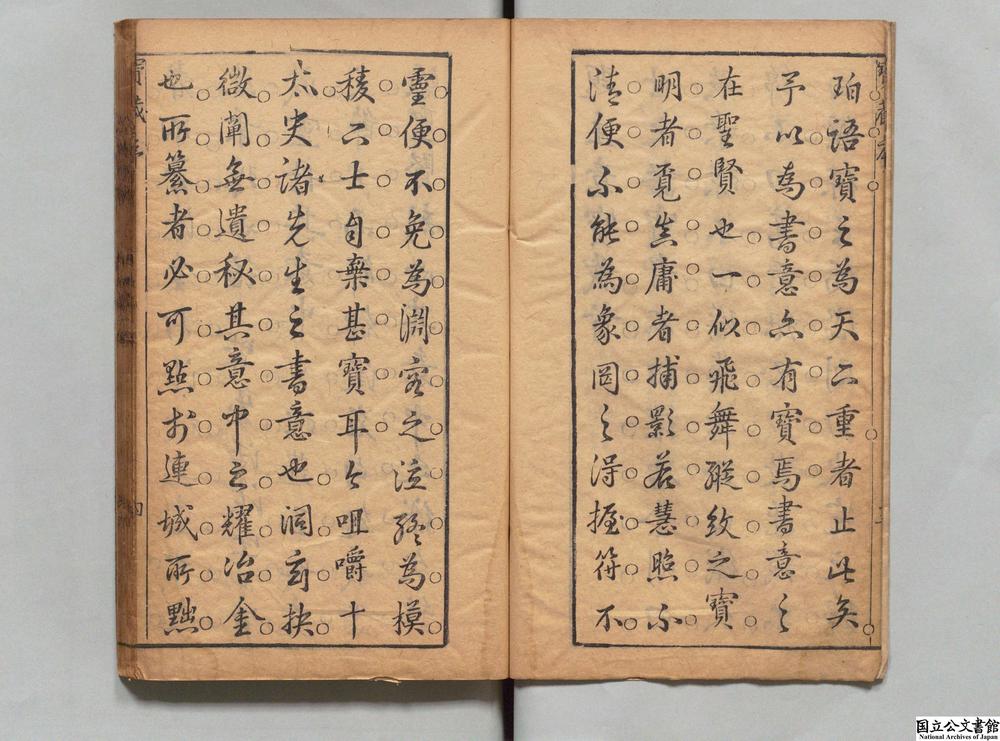 珀語寶之為天二重者止此矣
予以為書意亦有寶焉書意之
在聖賢也一似飛舞蹤紋之寶
明者覓焉庸者捕影若慧照不
清便不能為象罔之得握符不
靈便不免為淵客之泣終為模
稜二士自棄甚寶耳今咀嚼十
太史諸先生之書意也洞玄抉
微闡無遺秘其意中之耀冶金
也所纂者必可點於連城所黜
國立公文書館
National Archives of Japan